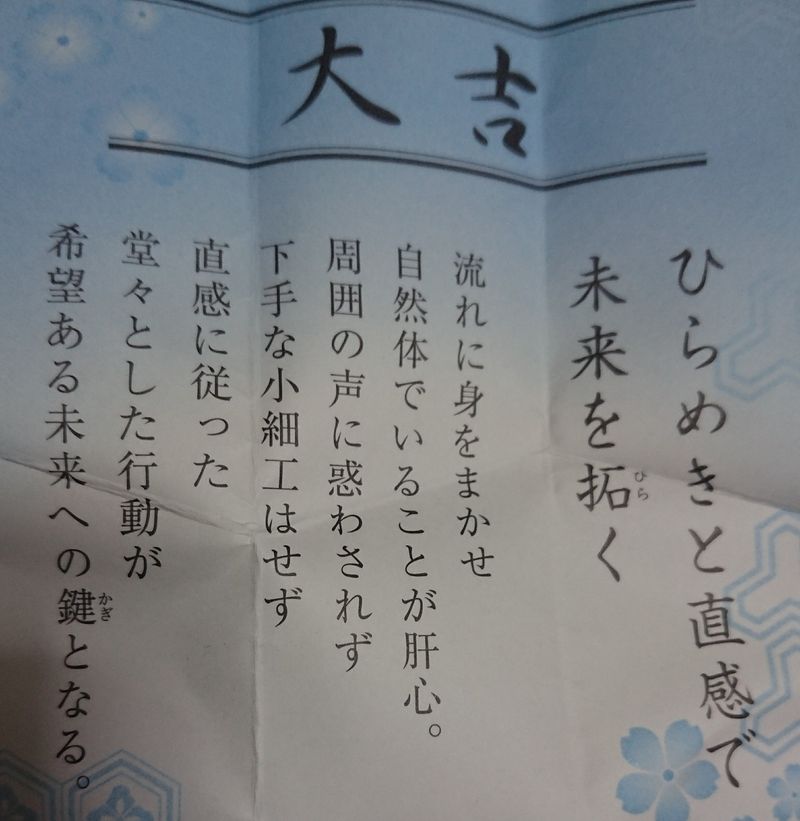 大吉
ひらめきと直感で
未来を拓く
ひら
流れに身をまかせ
自然体でいることが肝心。
周囲の声に惑わされず
下手な小細工はせず
直感に従った
堂々とした行動が
希望ある未来への鍵となる。
かぎ